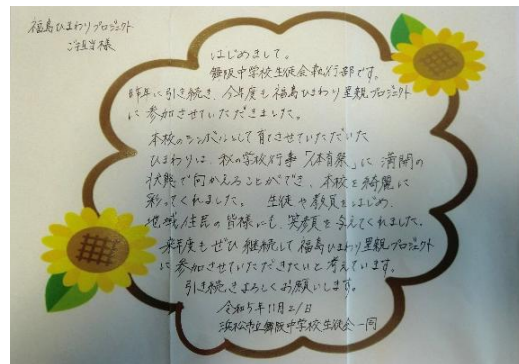 福島ひまわりプロジェクト
ご担当様
はじめまして。
舞阪中学校生徒会執行部です。
昨年に引き続き、今年度も福島ひまわり里親プロジェクト
に参加させていただきました。
本校のシンボルとして育てさせていただいた
ひまわりは、秋の学校行事「体育祭」に満開の
状態で向かえることができ、本校を綺麗に
彩ってくれました。生徒や教員をはじめ、
地域住民の皆様にも、笑顔を与えてくれました。
来年度もぜひ継続して福島ひまわり里親プロジェクト
に参加させていただきたいと考えています。
引き続きよろしくお願いします。
令和5年11月21日
浜松市立舞阪中学校生徒会一同